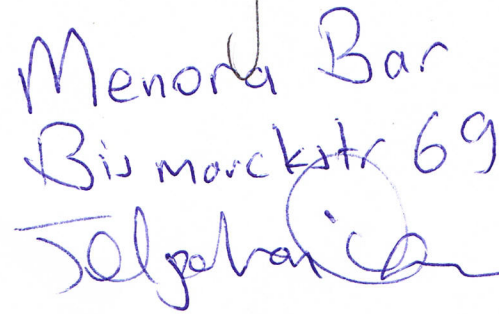 Menora Bar
Bismarckstr 69